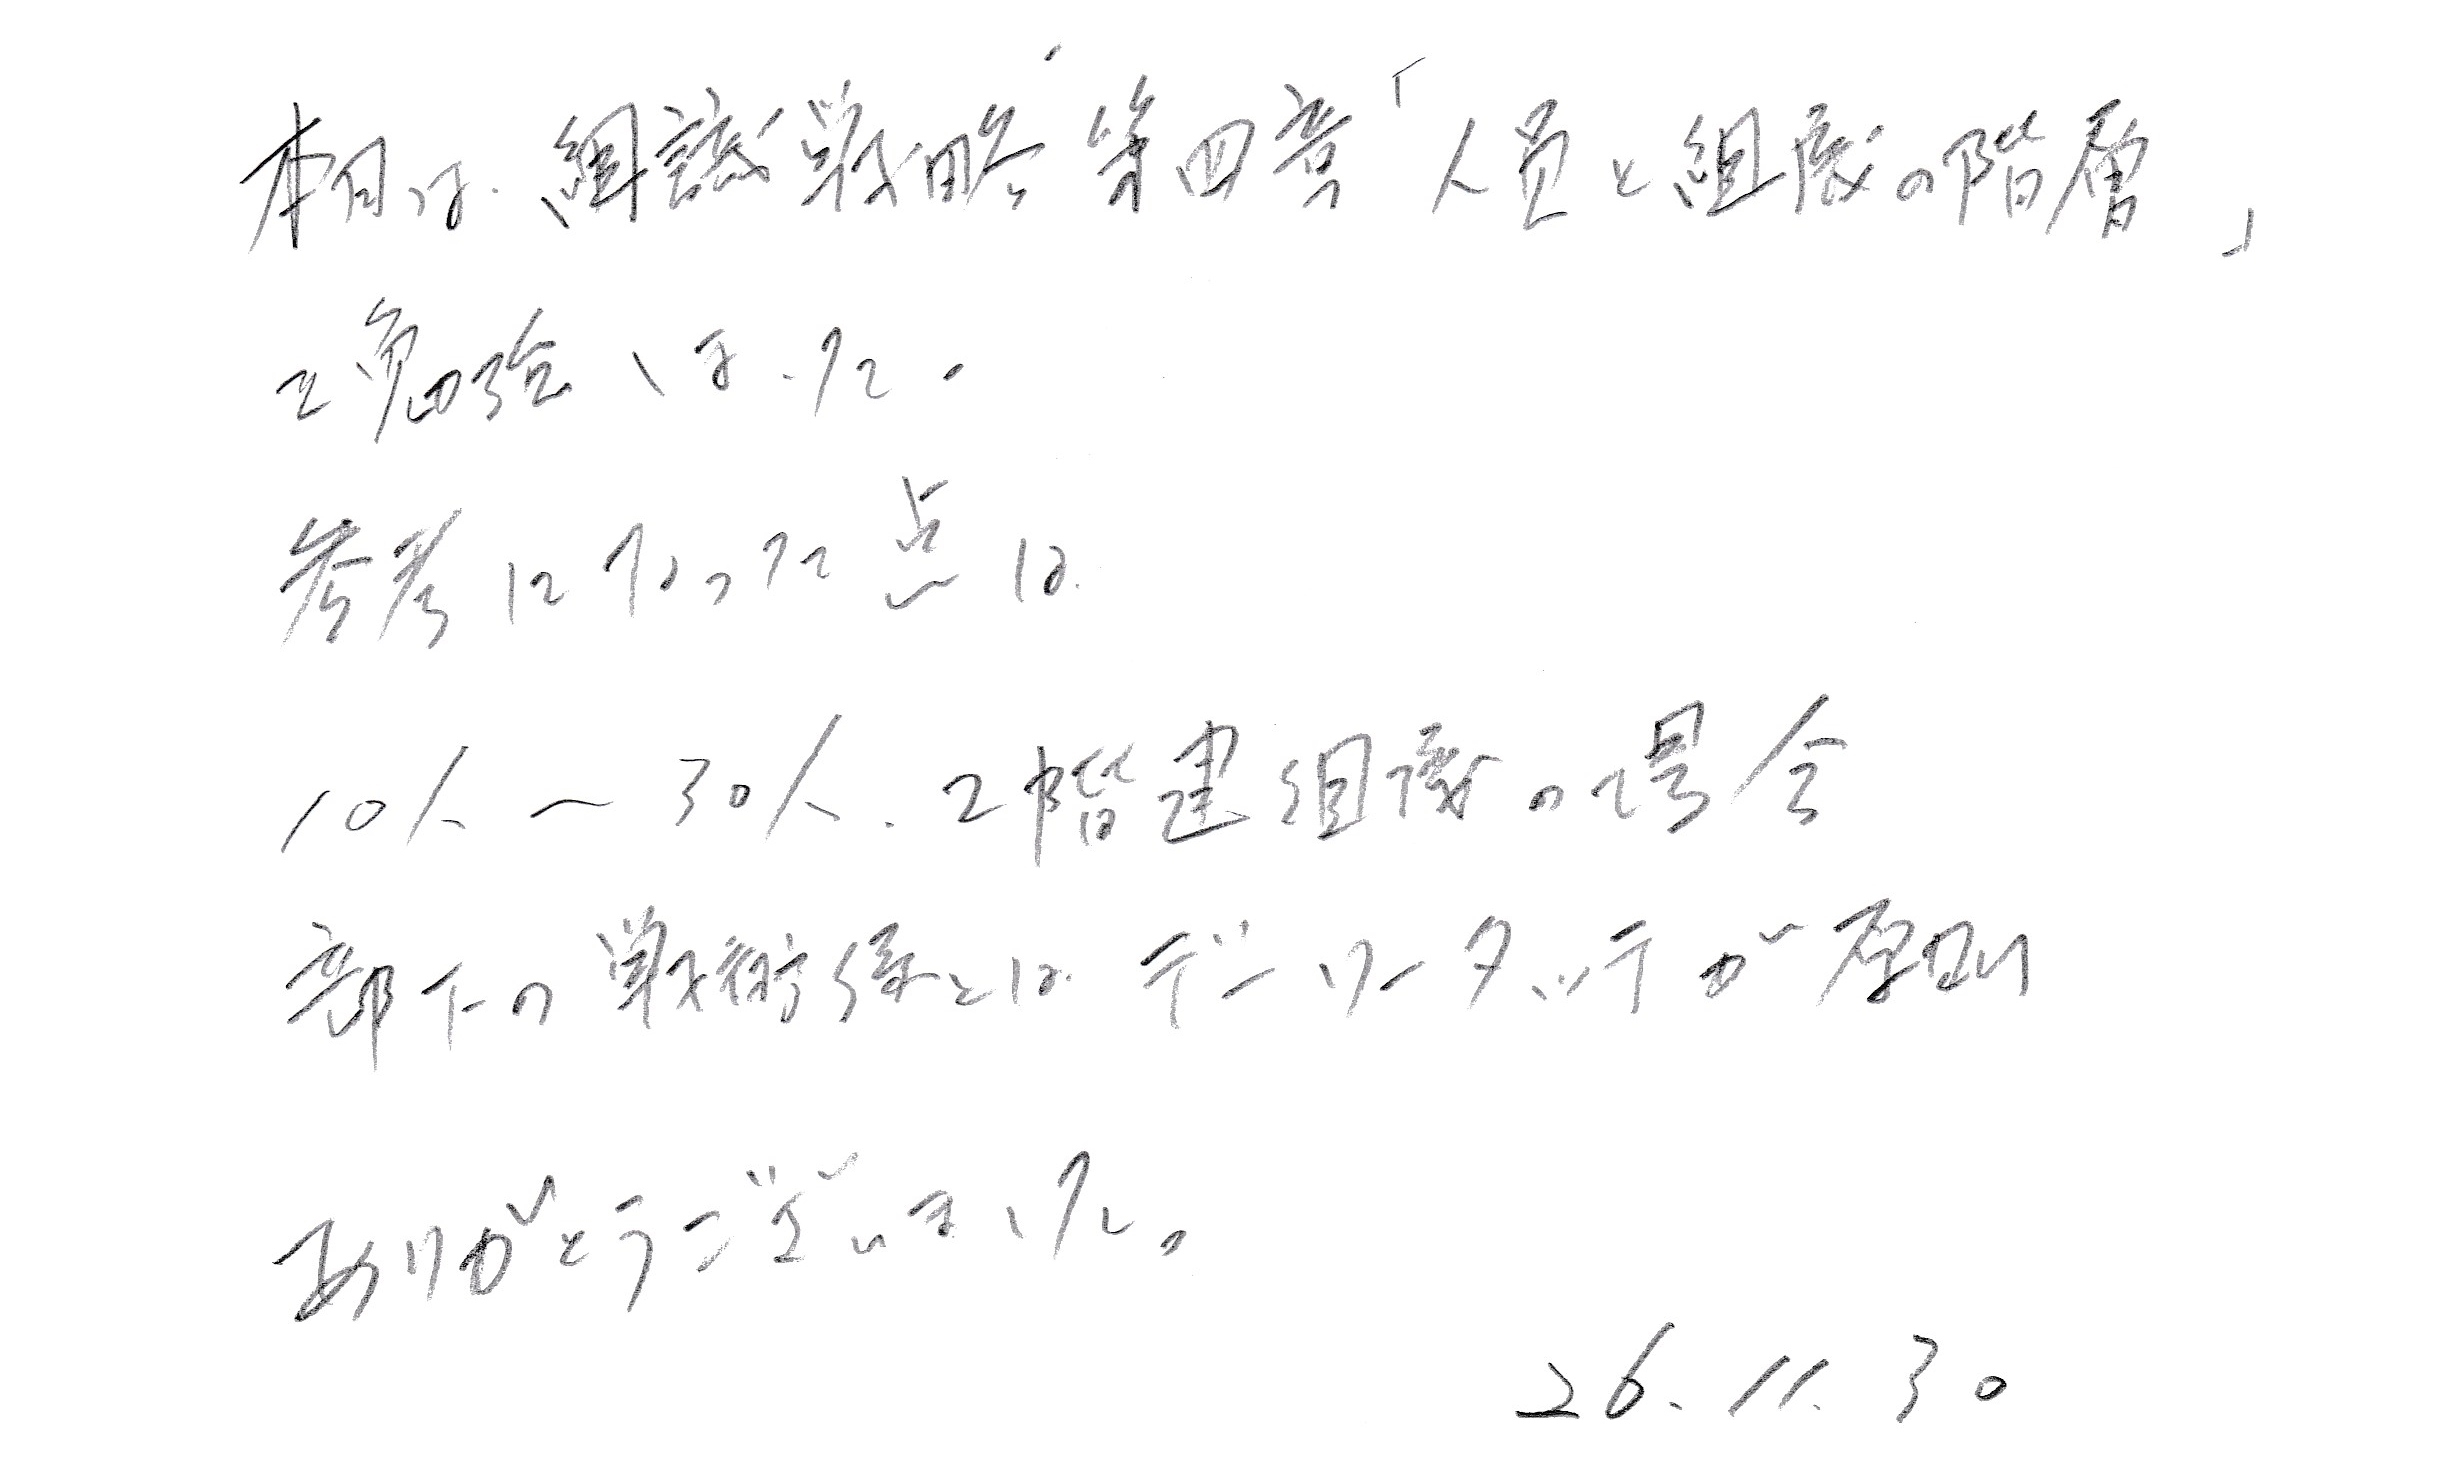 本日は、組織戦略 第四章「人員と組織の階層」
を勉強しました。
参考になった点は
10人～30人、2階建組織の場合
部下の戦術係とは デーリータッチが原則
ありがとうございました。
26.11.30